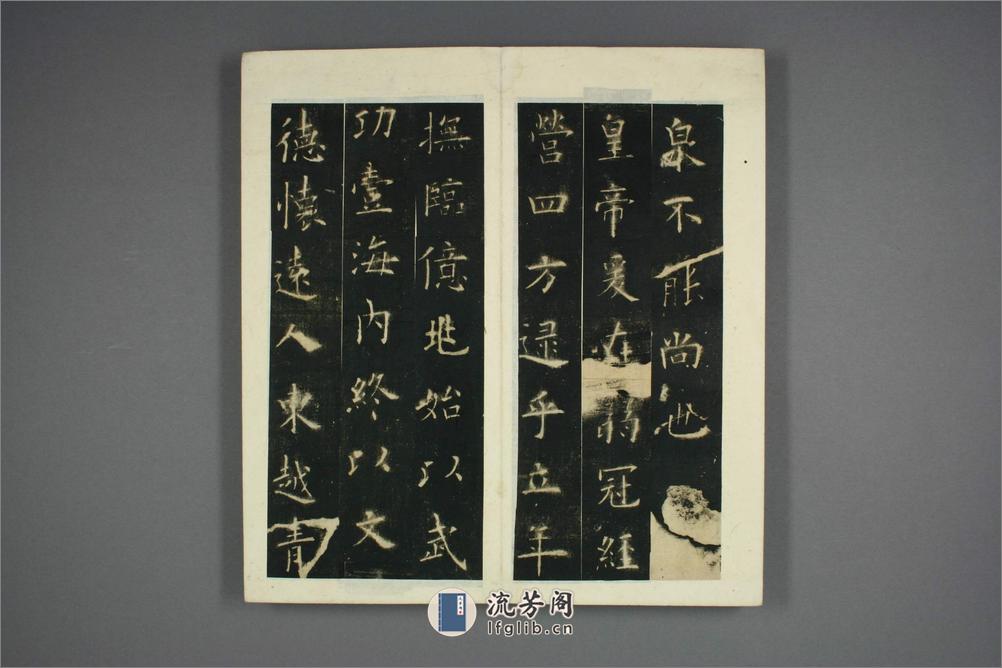 泉不能尚也
皇帝爰在弱冠經
營四方逮乎立年
撫臨億兆始以武
功壹海內終以文
德懷遠人東越青
流芳阁
lfglib.cn